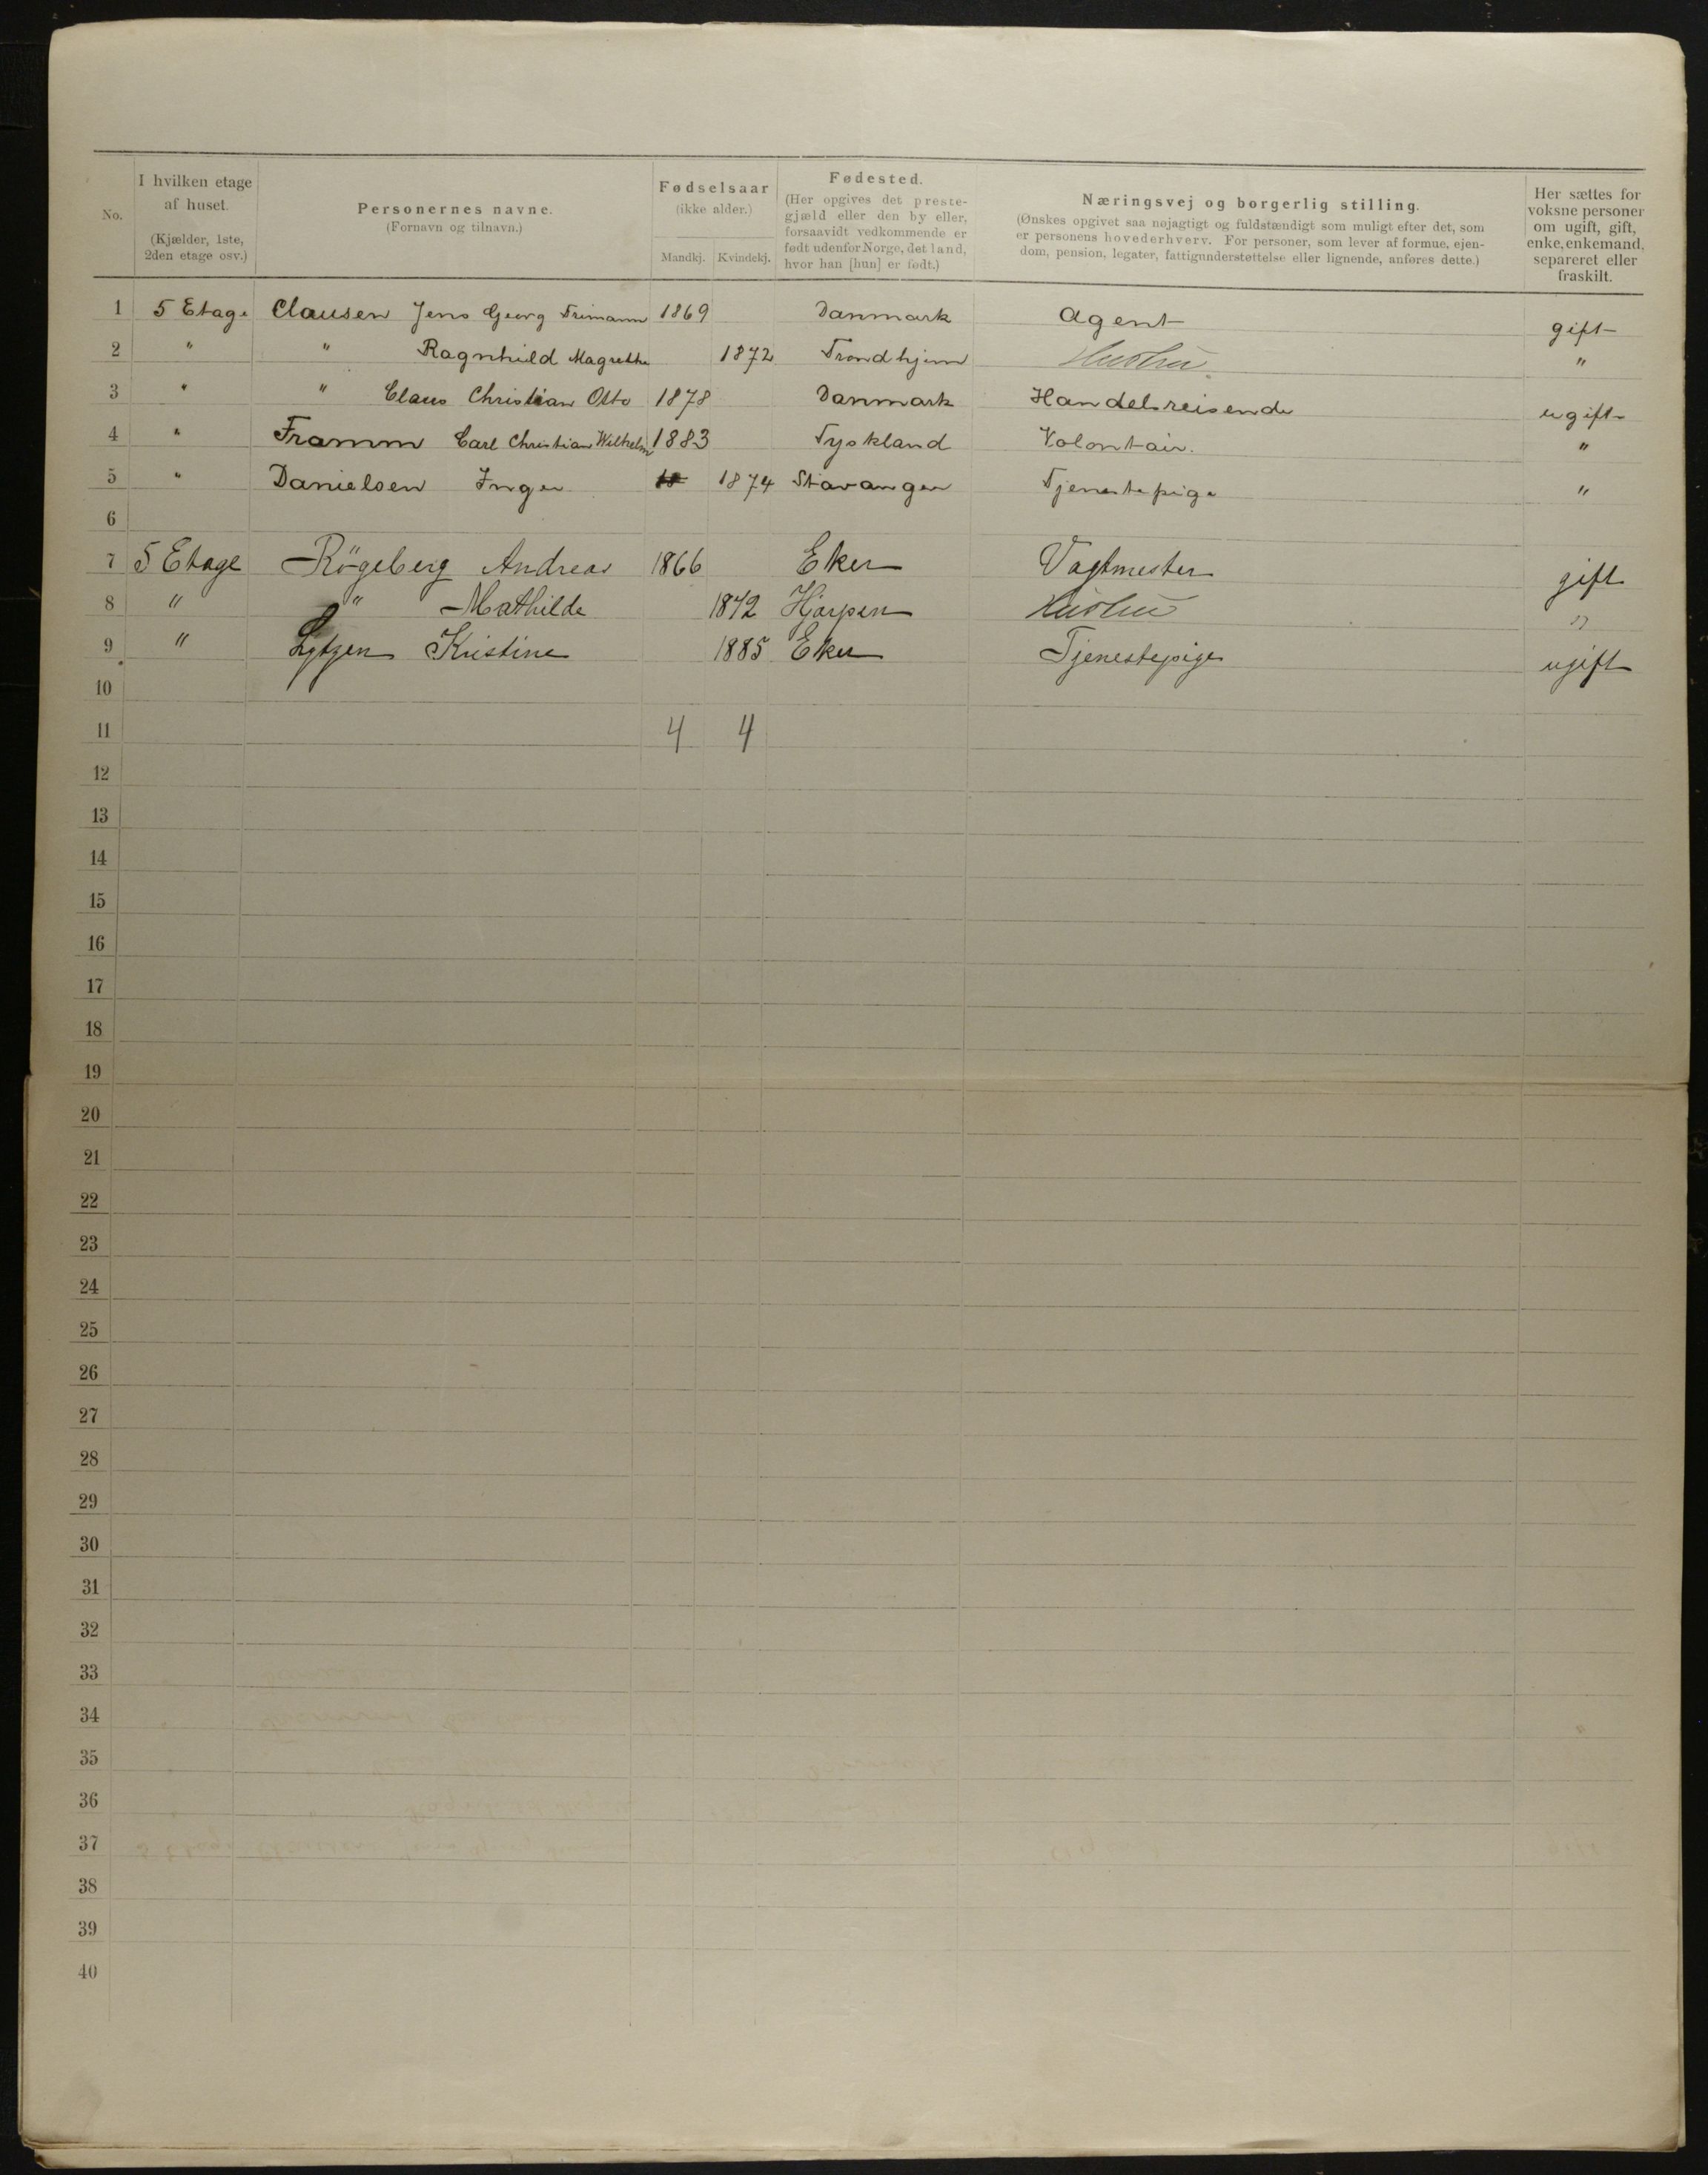 No.
I hvilken etage af huset.
(Kjælder, 1ste, 2den etage osv.)
Personernes navne.
(Fornavn og tilnavn.)
Fødselsaar
(ikke alder.)
Mandkj. Kvindekj.
Fødested.
(Her opgives det preste-
gjæld eller den by eller,
forsaavidt vedkommende er
født udenfor Norge, det land,
hvor han [hun] er født.)
Næringsvej og borgerlig stilling.
(Ønskes opgivet saa nøjagtigt og fuldstændigt som muligt efter det, som
er personens hovederhverv. For personer, som lever af formue, ejen-
dom, pension, legater, fattigunderstøttelse eller lignende, anføres dette.)
Her sættes for
voksne personer
om ugift, gift,
enke, enkemand,
separeret eller
fraskilt.
1 5 Etage Clausen Jens Georg Trimann 1869 Danmark Agent gift
2 " " Ragnhild Magrethe 1872 Trondhjem Hustru "
3 " " Claus Christian Otto 1878 Danmark Handelsreisende ugift
4 " Framm Carl Christian Wilhelm 1883 Tyskland Volontair. "
5 " Danielsen Inger 18 1874 Stavanger Tjenestepige "
6
7 5 Etage Rögeberg Andreas 1866 Eker Vagtmester gift
8 " " Mathilde 1872 Hjerpen Hustru "
9 " Lytzen Kristine 1885 Eker Tjenestepige ugift
10
11 4 4
12
13
14
15
16
17
18
19
20
21
22
23
24
25
26
27
28
29
30
31
32
33
34
35
36
37
38
39
40